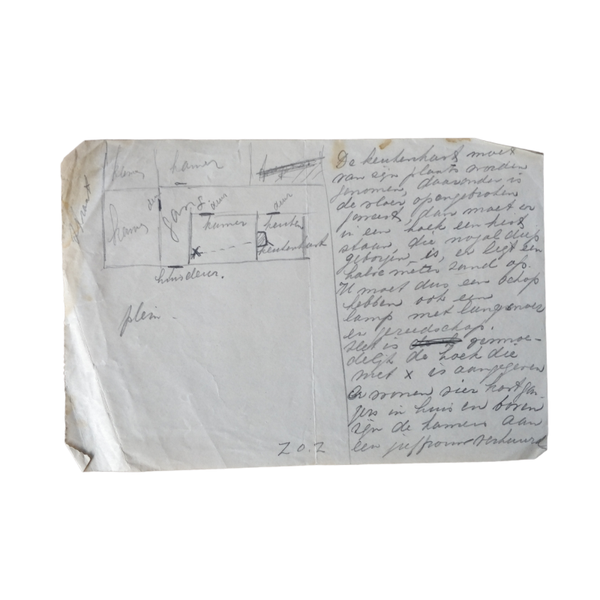 kamer
kamer
gang
deur
deur
deur
kamer
keuken
keukenkast
x
huisdeur.
plein.
Z.O.Z
De keukenkast moet
van zijn plaats worden
genomen, daaronder is
de vloer opengebroken
geweest, dan moet er
in een hoek een kist
staan die nogal diep
geborgen is, er ligt een
halve meter zand op.
U moet dus een schop
hebben ook een
lamp met lang snoer
en gereedschap.
Het is vermoe-
delijk de hoek die
met x is aangegeven
Er wonen vier kostgan-
gers in huis en boven
zijn de kamers aan
een juffrouw verhuurd